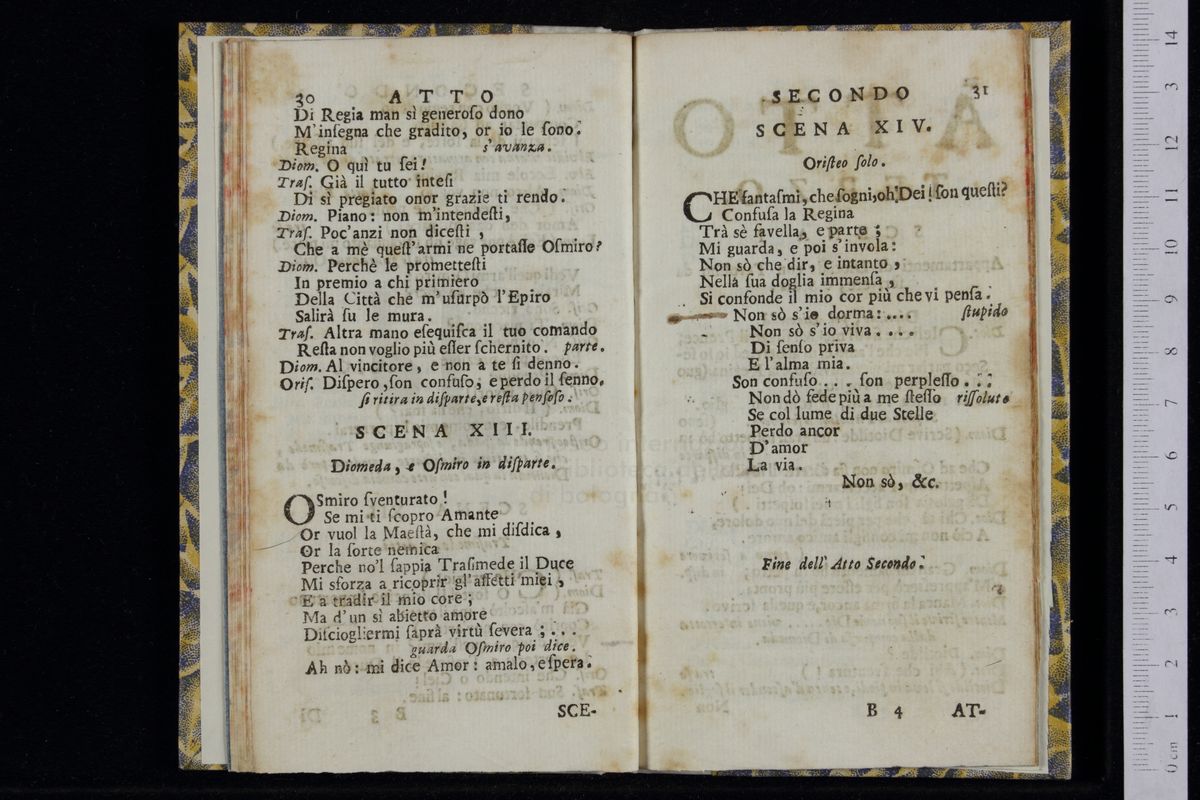 30 ATTO
Di Regia man sì generoſo dono
M'inſegna che gradito, or io le ſono.
Regina s'avanza.
Diom. O quì tu ſei!
Traſ. Già il tutto inteſi
Di sì pregiato onor grazie ti rendo.
Diom. Piano: non m'intendeſti,
Traſ. Poc'anzi non diceſti,
Che a mè queſt'armi ne portaſſe Oſmiro?
Diom. Perchè le prometteſti
In premio a chi primiero
Della Città che m'uſurpò l'Epiro
Salirà ſu le mura.
Traſ. Altra mano eſequiſca il tuo comando
Reſta non voglio più eſſer ſchernito. parte.
Diom. Al vincitore, e non a te ſi denno.
Oriſ. Diſpero, ſon confuſo, e perdo il ſenno.
ſi ritira in diſparte, e reſta penſoſo.
SCENA XIII.
Diomeda, e Oſmiro in diſparte.
OSmiro ſventurato!
Se mi ti ſcopro Amante
Or vuol la Maeſtà, che mi diſdica,
Or la ſorte nemica
Perche no'l ſappia Traſimede il Duce
Mi sforza a ricoprir gl'affetti miei,
E a tradir il mio core;
Ma d'un sì abietto amore
Diſciogliermi ſaprà virtù ſevera;...
guarda Oſmiro poi dice.
Ah nò: mi dice Amor: amalo, e ſpera.
SCE-
SECONDO 31
SCENA XIV.
Oriſteo ſolo.
CHE fantaſmi, che ſogni, oh Dei! ſon queſti?
Confuſa la Regina
Trà sè favella, e parte;
Mi guarda, e poi s'invola:
Non sò che dir, e intanto,
Nella ſua doglia immenſa,
Si confonde il mio cor più che vi penſa.
Non sò s'io dorma:.... ſtupido
Non sò s'io viva....
Di ſenſo priva
E l'alma mia.
Son confuſo... ſon perpleſſo...
Non dò fede più a me ſteſſo riſſoluto
Se col lume di due Stelle
Perdo ancor
D'amor
La via.
Non sò, &c.
Fine dell' Atto Secondo.
B 4 AT-